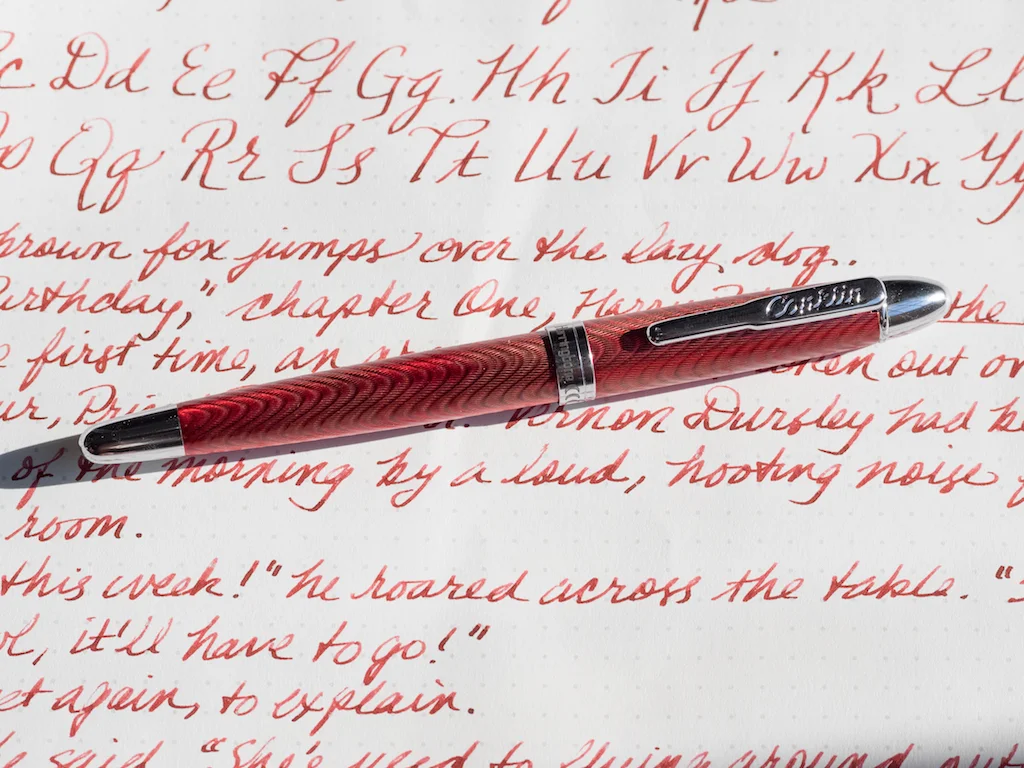 c Dd Ee Ff Gg Hh Ii Jj Kk Ll
Qq Rr Ss Tt Uu Vv Ww Xx Yy
brown fox jumps over the lazy dog..
irthday," chapter One, Harry the
first time, an out
ur, Vernon Dursley had be
of the morning by a loud, hooting noise f
room.
this week!" he roared across the table. "
l, it'll have to go!"
et again, to explain.
said. "She's used to flying around out
Conklin